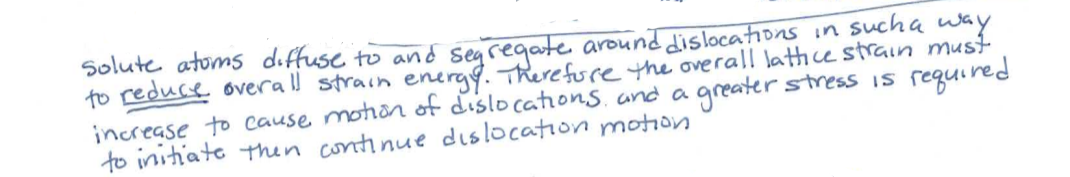 solute atoms diffuse to and segregate around dislocations in such a way
to reduce overall strain energy. Therefore the overall lattice strain must
increase to cause motion of dislocations. and a greater stress is required
to initiate then continue dislocation motion